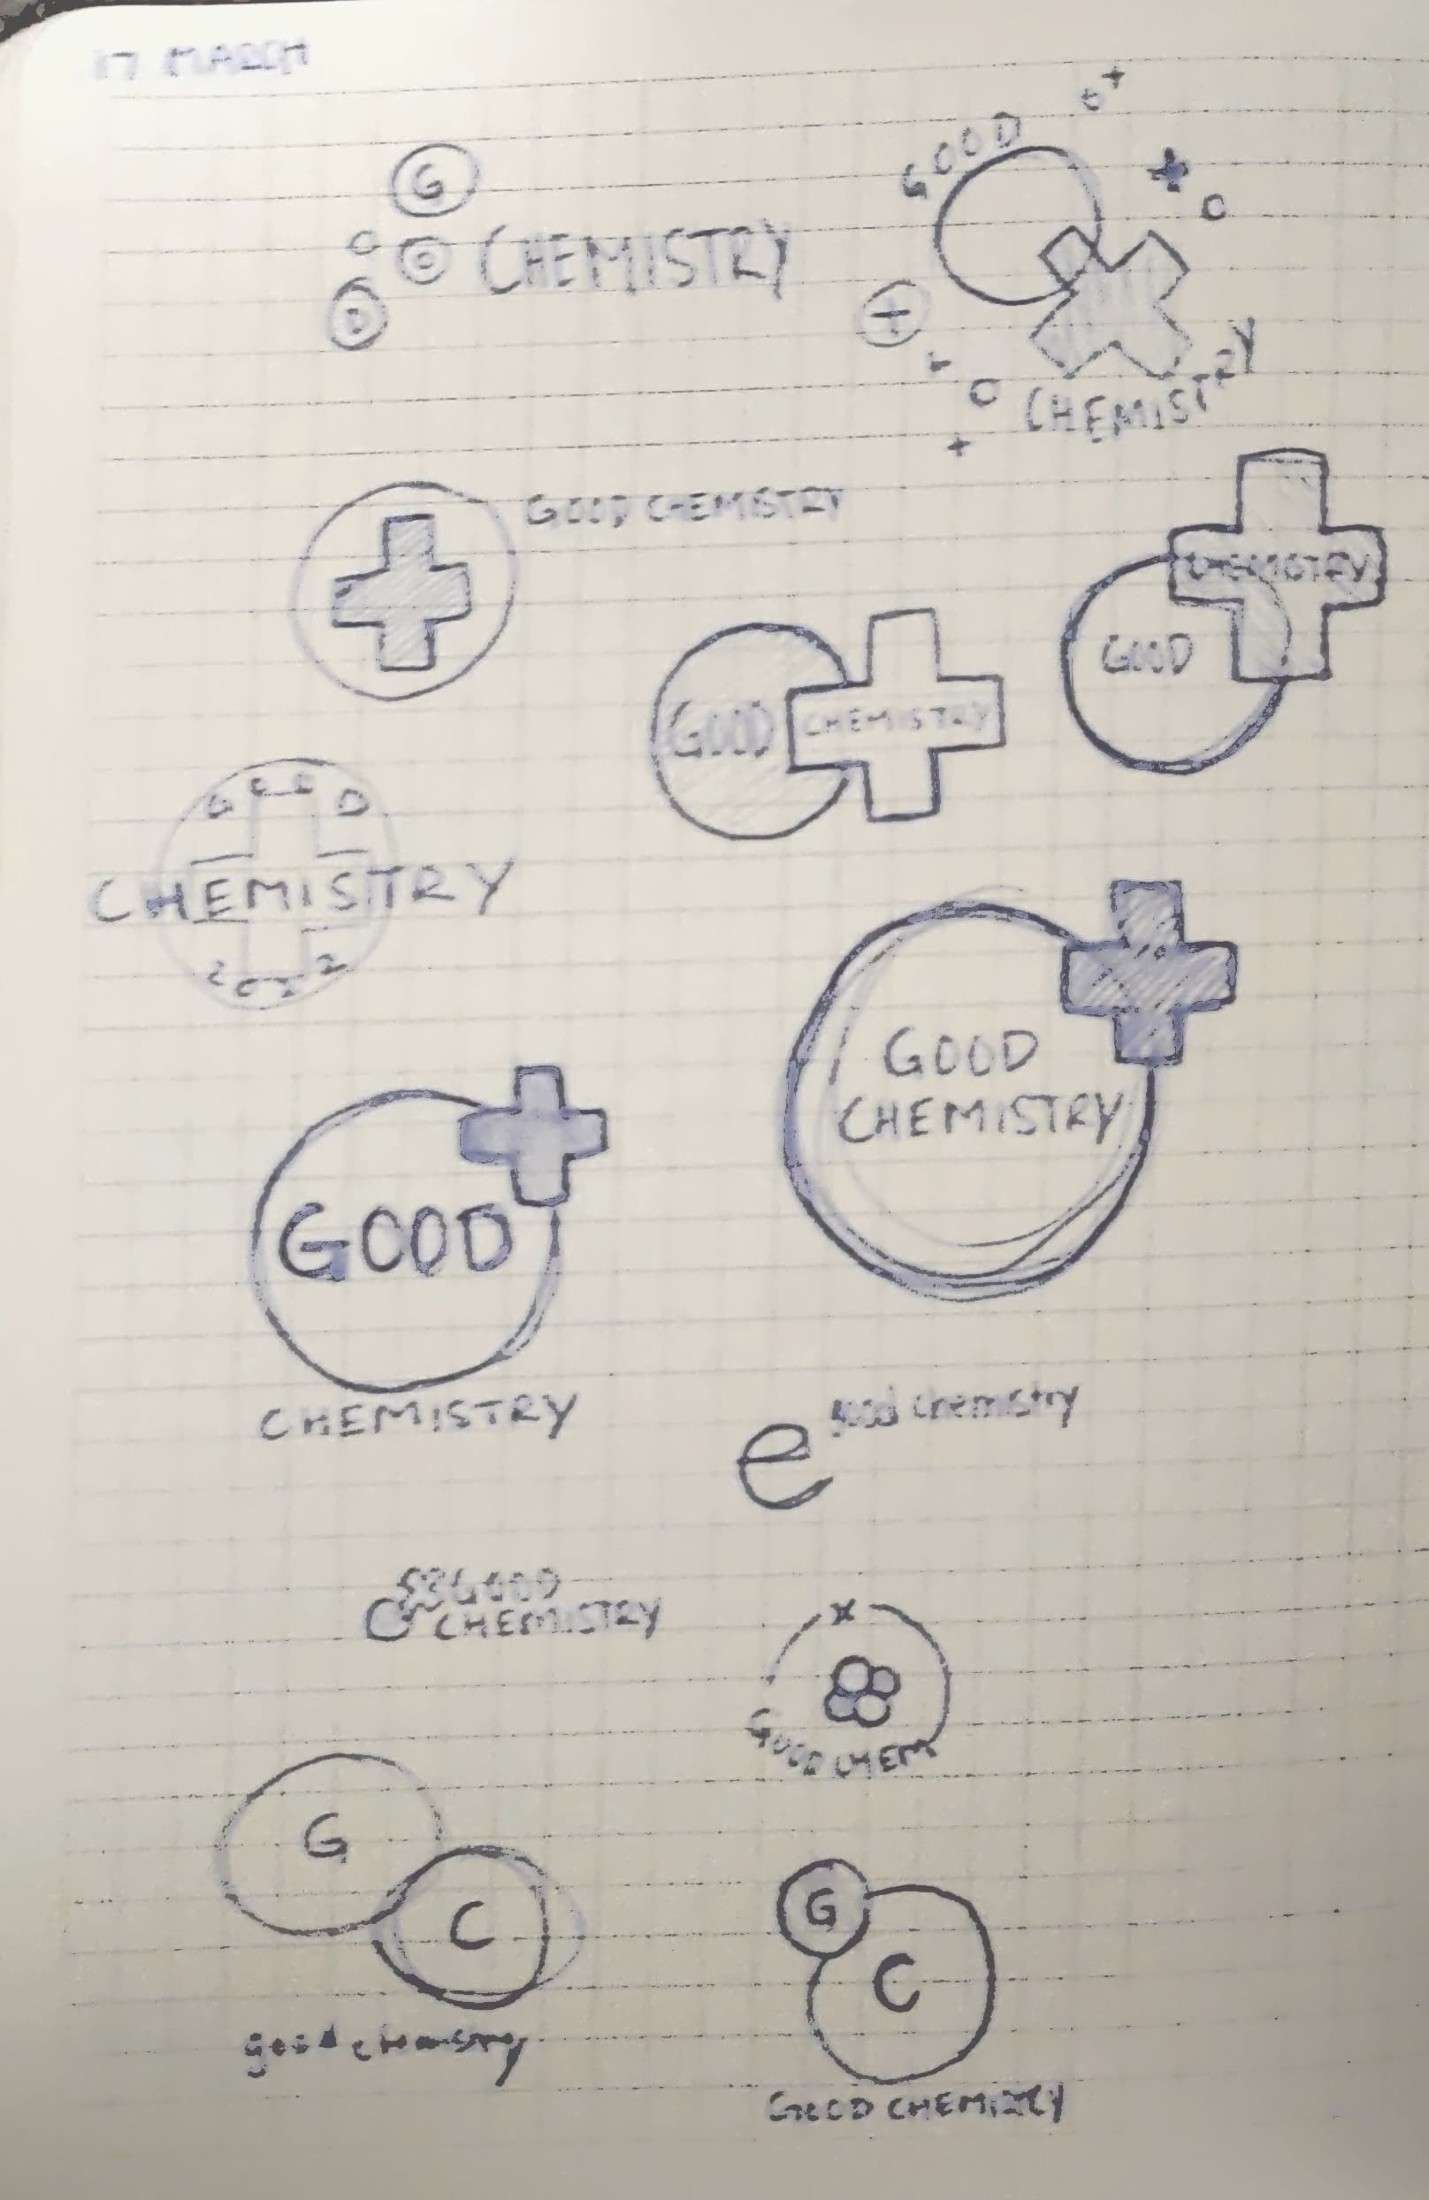 17 MARCH
G
O
O
D
CHEMISTRY
GOOD
CHEMISTRY
GOOD CHEMISTRY
GOOD
CHEMISTRY
GOOD
CHEMISTRY
GOOD
CHEMISTRY
2022
GOOD
CHEMISTRY
GOOD
CHEMISTRY
e good chemistry
GOOD
CHEMISTRY
GOOD CHEM
G
C
good chemistry
G
C
GOOD CHEMISTRY